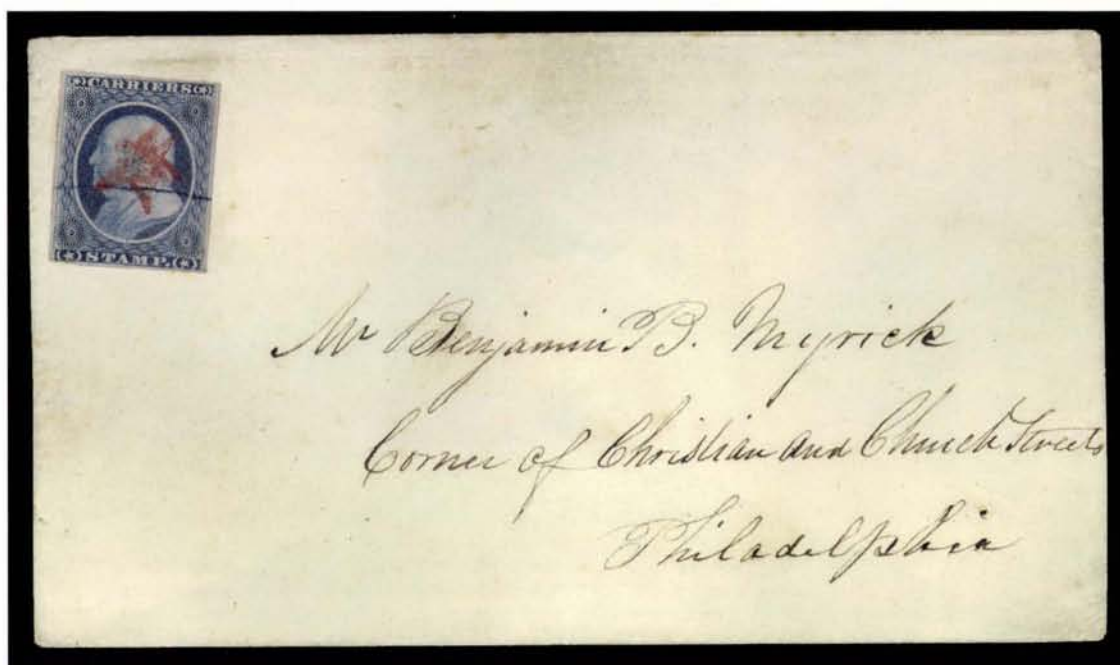 CARRIERS
STAMP.
Mr Benjamin B. Myrick
Corner of Christian and Church Streets
Philadelphia